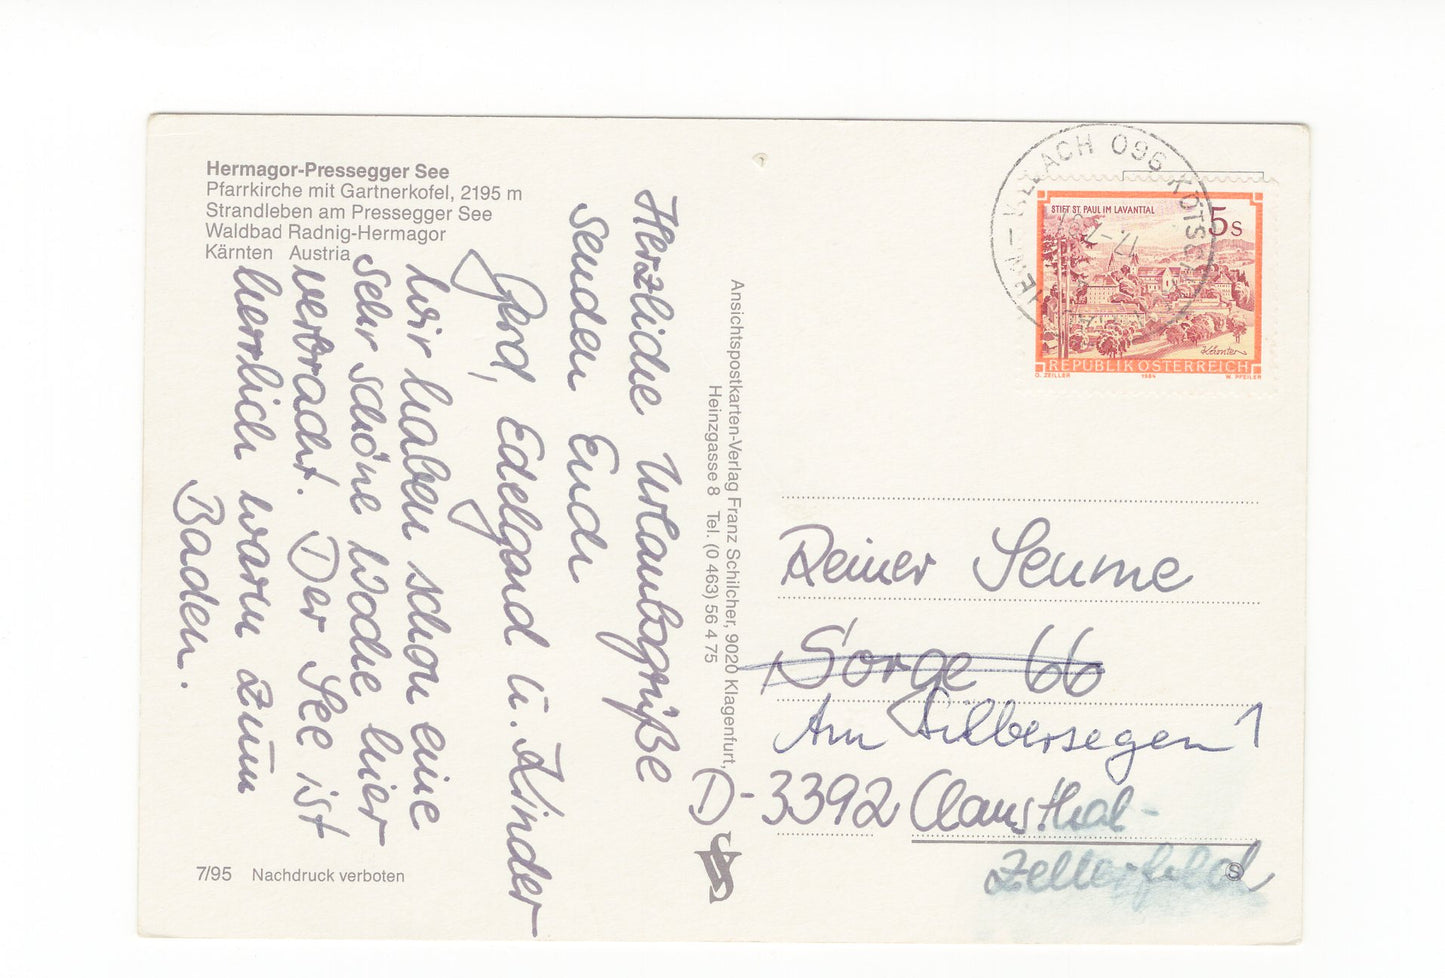 Hermagor-Pressegger See
Pfarrkirche mit Gartnerkofel, 2195 m
Strandleben am Pressegger See
Waldbad Radnig-Hermagor
Kärnten Austria
Herzliche Urlaubsgrüße
senden Euch
Gerd, Edelgard u. Kinder
Wir haben schon eine
sehr schöne Woche hier
verbracht. Der See ist
herrlich warm zum
Baden.
7/95 Nachdruck verboten
Ansichtspostkarten-Verlag Franz Schilcher, 9020 Klagenfurt,
Heinzgasse 8 Tel. (0 463) 56 4 75
096 KÖTSCH
STIFT ST. PAUL IM LAVANTTAL
5 S
Kärnten
REPUBLIK ÖSTERREICH
O. ZEILLER 1984 W. PFEILER
Reiner Seume
Sorge 66
Am Silbersegen 1
D-3392 Clausthal-
Zellerfeld
S